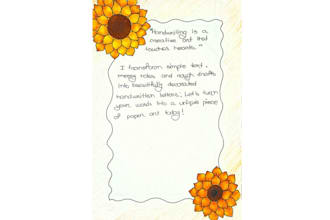 "Handwriting is a
creative art that
touches hearts."
I transform simple text,
messy notes, and rough drafts
into beautifully decorated
handwritten letters. Let's turn
your words into a unique piece
of paper art today!